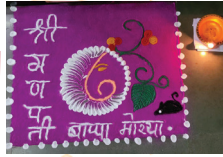 श्री
ग
ण
प
ती बाप्पा मोरया.